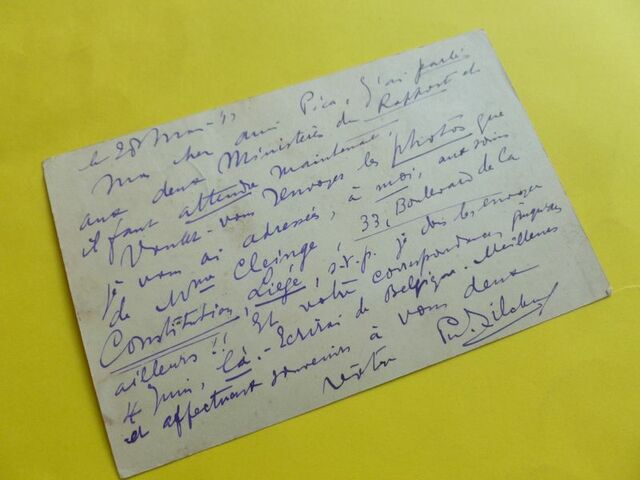 le 28 Mai
Mon cher ami Pica, J'ai parlé
aux deux Ministères du Rapport et
il faut attendre maintenant!
Voulez-vous envoyer les photos que
je vous ai adressés, à moi, aux soins
de Mme Cleinge, 33, Boulevard de la
Constitution, Liége, s.t.p. je dois les envoyer
ailleurs!! Et votre correspondance jusqu'au
4 Juin, là. - Ecrirai de Belgique. Meilleurs
et affectueux souvenirs à vous deux
Vôtre Ph. Zilcken